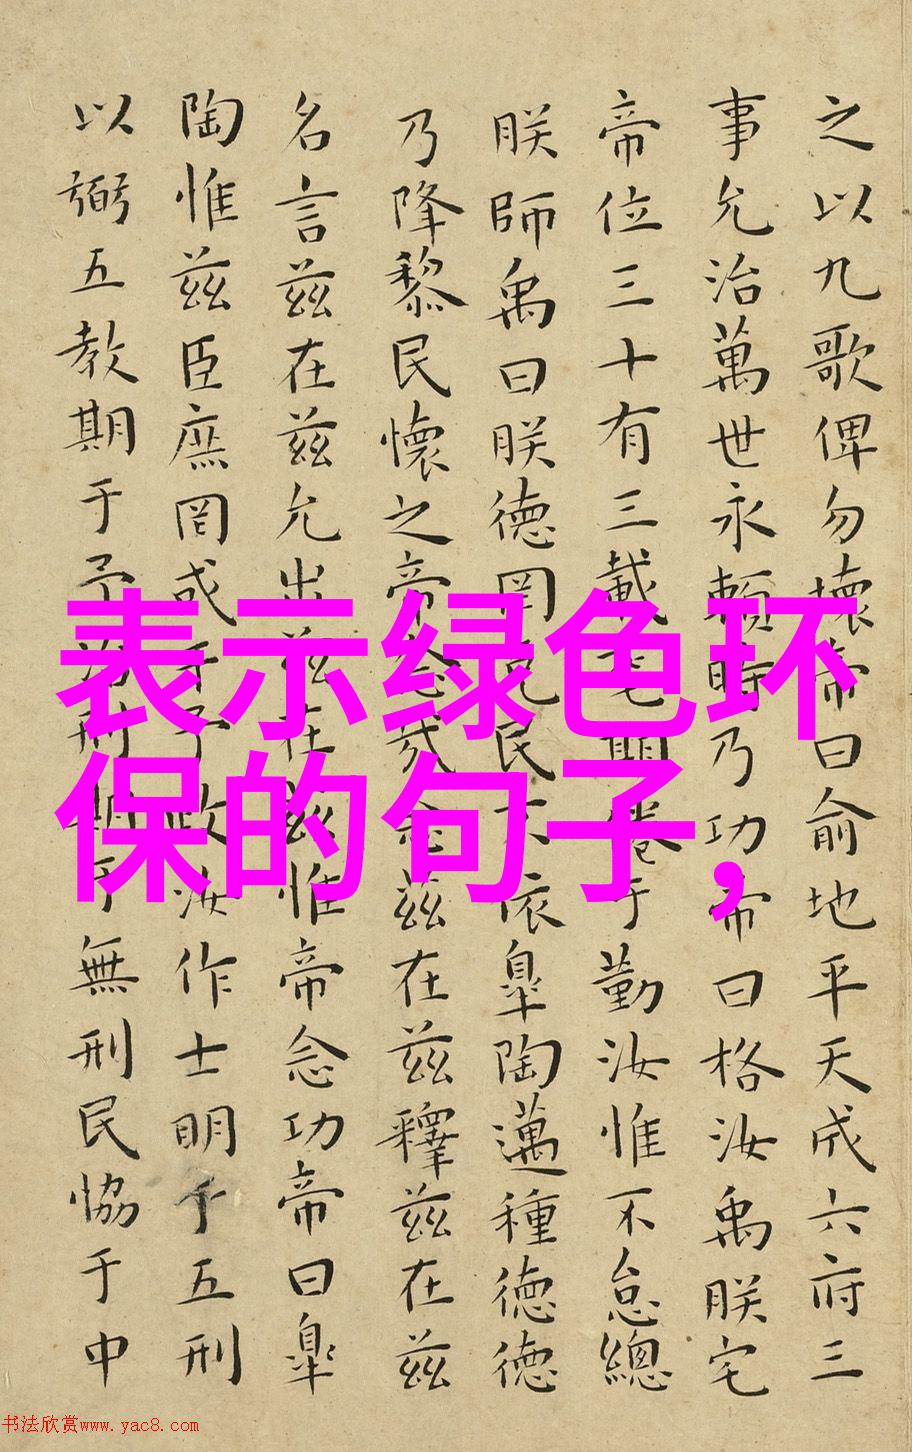 之以九歌俾勿壞帝曰俞地平天成六府三
事允治萬世永賴時乃功帝曰格汝禹朕宅
帝位三十有三載耄期倦于勤汝惟不怠總
朕師禹曰朕德罔克民不依皐陶邁種德德
乃降黎民懷之帝念哉念茲在茲釋茲在茲
名言茲在茲允出茲在茲惟帝念功帝曰皐
陶惟茲臣庶罔或干予政汝作士明于五刑
以弼五教期于予治刑期于無刑民協于中
表示绿色环
保的句子，
书法欣赏www.yac8.com